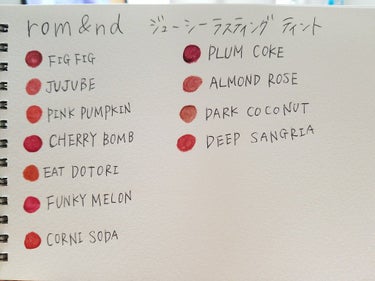 rom&nd ジューシーラスティングティント
FIG FIG
JUJUBE
PINK PUMPKIN
CHERRY BOMB
EAT DOTORI
FUNKY MELON
CORNI SODA
PLUM COKE
ALMOND ROSE
DARK COCONUT
DEEP SANGRIA